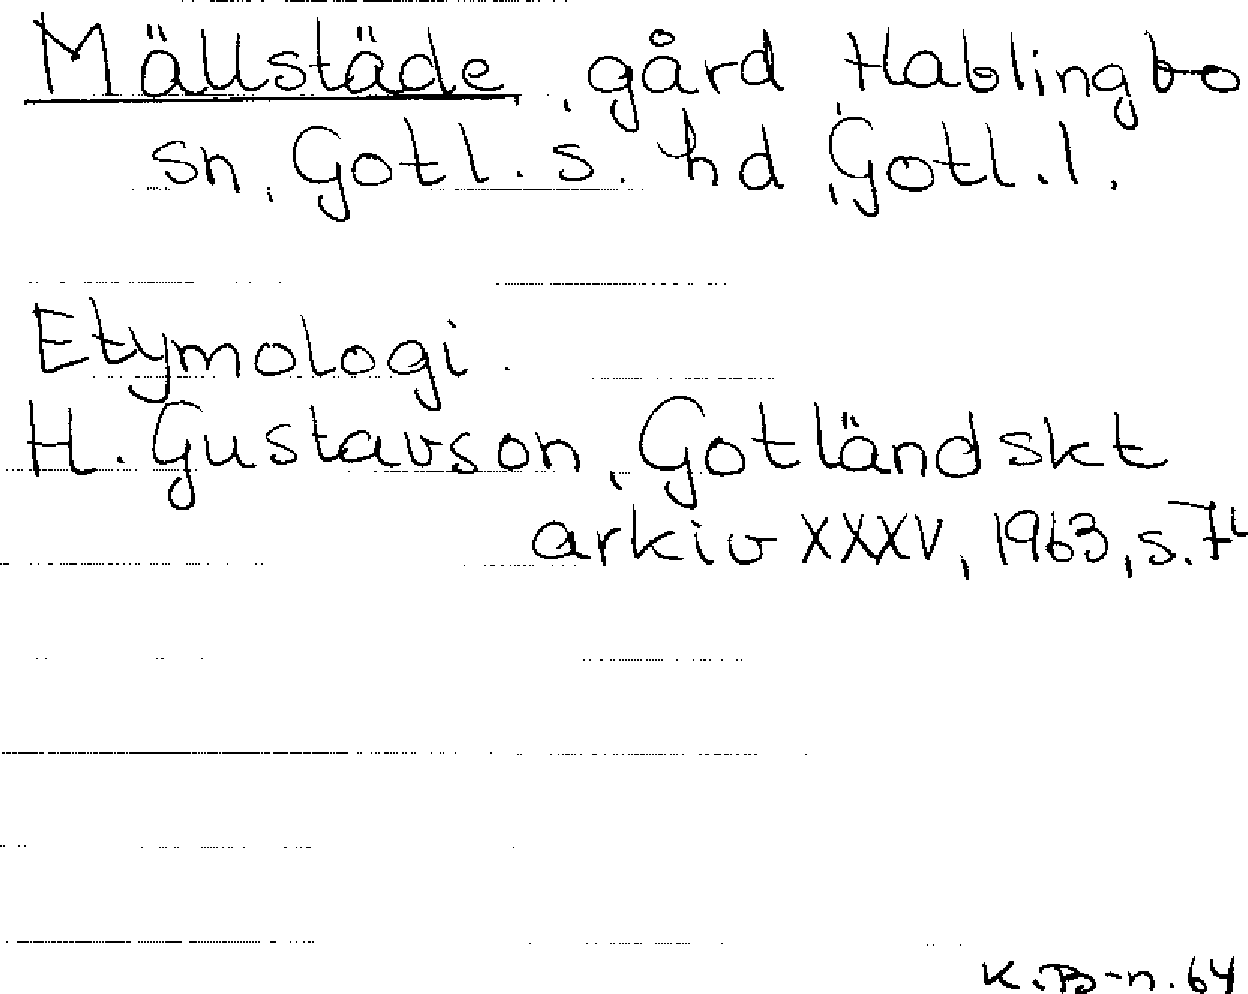 Mällstäde, gård Hablingbo
sn, Gotl. s. hd, Gotl. l.
Etymologi.
H. Gustavson, Gotländskt
arkiv XXXV, 1963, s.
K.B-n. 64